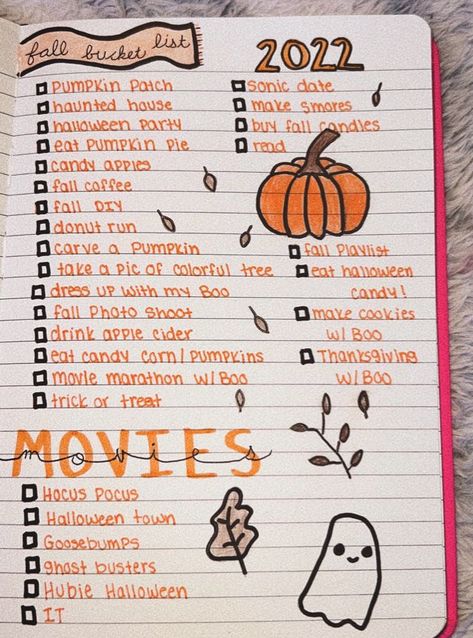 fall bucket list
2022
pumpkin patch
haunted house
halloween party
eat pumpkin pie
candy apples
fall coffee
fall DIY
donut run
carve a pumpkin
take a pic of colorful tree
dress up with my Boo
fall photo shoot
drink apple cider
eat candy corn/pumpkins
movie marathon w/ Boo
trick or treat
sonic date
make smores
buy fall candles
read
fall playlist
eat halloween
candy!
make cookies
w/ Boo
Thanksgiving
w/ Boo
MOVIES
movies
Hocus Pocus
Halloween town
Goosebumps
ghost busters
Hubie Halloween
IT